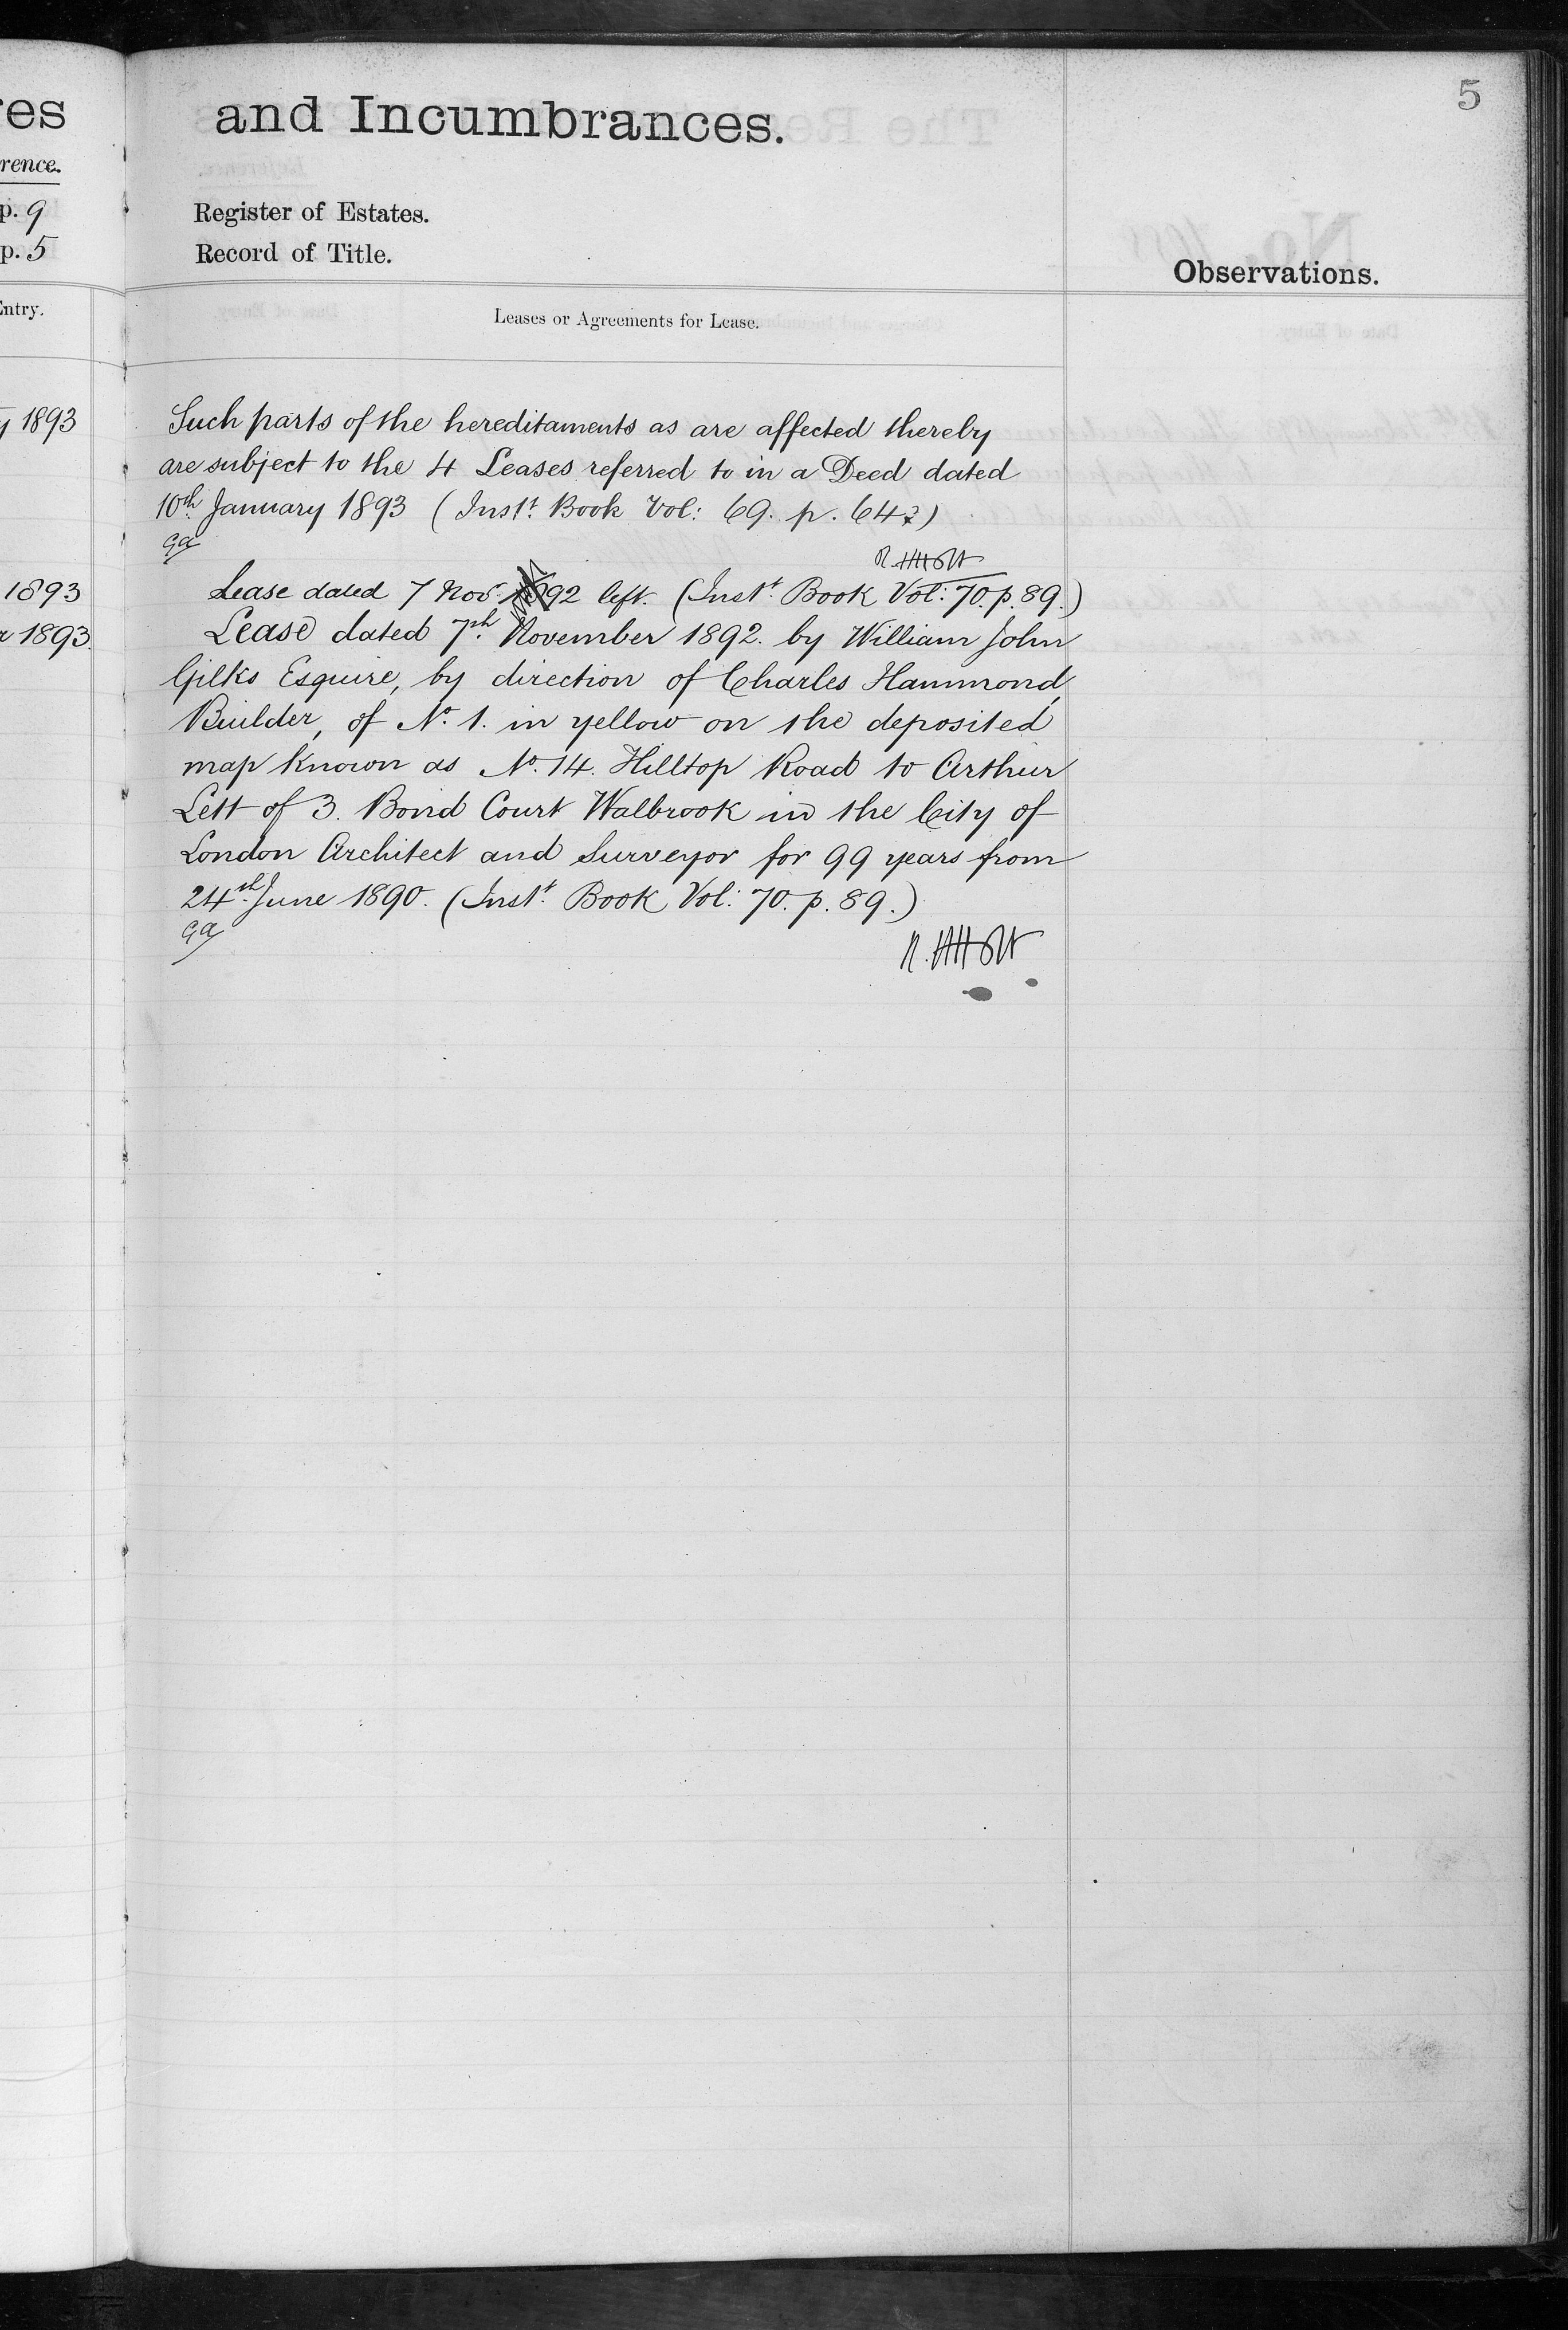 5
res
rence.
p. 9
p. 5
Entry.
y 1893
1893
r 1893.
and Incumbrances.
Register of Estates.
Record of Title.
Observations.
Leases or Agreements for Lease.
Such parts of the hereditaments as are affected thereby
are subject to the 4 Leases referred to in a Deed dated
10th January 1893 (Instt. Book Vol: 69. p. 642)
Lease dated 7 Nov. 1892 left. (Instt. Book Vol: 70. p. 89.)
Lease dated 7th November 1892. by William John
Gilks Esquire, by direction of Charles Hammond,
Builder, of No. 1. in yellow on the deposited
map known as No. 14. Hilltop Road to Arthur
Lett of 3. Bond Court Walbrook in the City of
London Architect and Surveyor for 99 years from
24th June 1890. (Instt. Book Vol: 70. p. 89.)